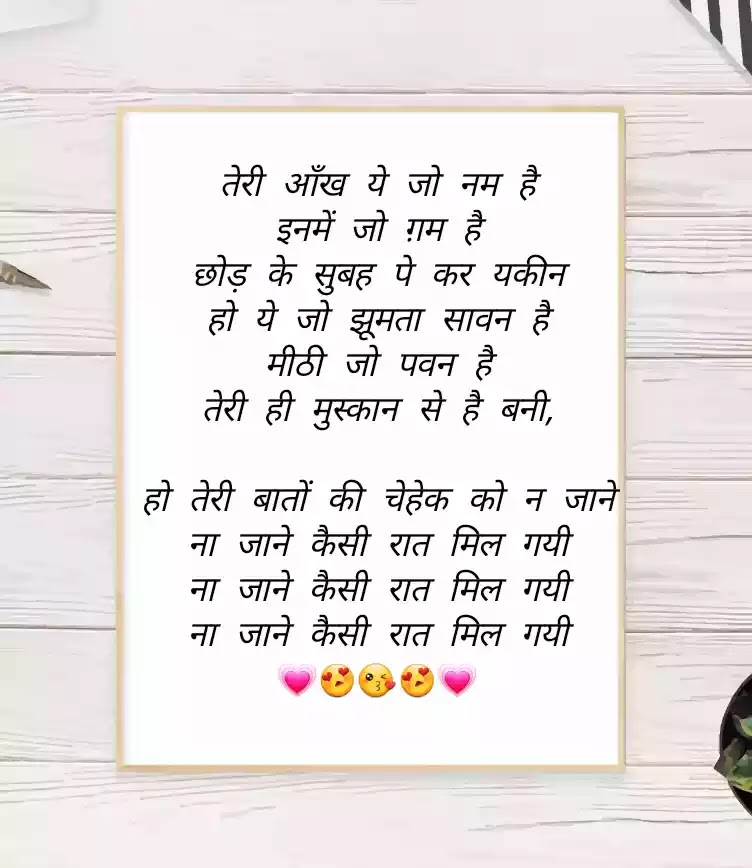 तेरी आँख ये जो नम है
इनमें जो ग़म है
छोड़ के सुबह पे कर यकीन
हो ये जो झूमता सावन है
मीठी जो पवन है
तेरी ही मुस्कान से है बनी,
हो तेरी बातों की चेहेक को न जाने
ना जाने कैसी रात मिल गयी
ना जाने कैसी रात मिल गयी
ना जाने कैसी रात मिल गयी
💗😍😘😍💗